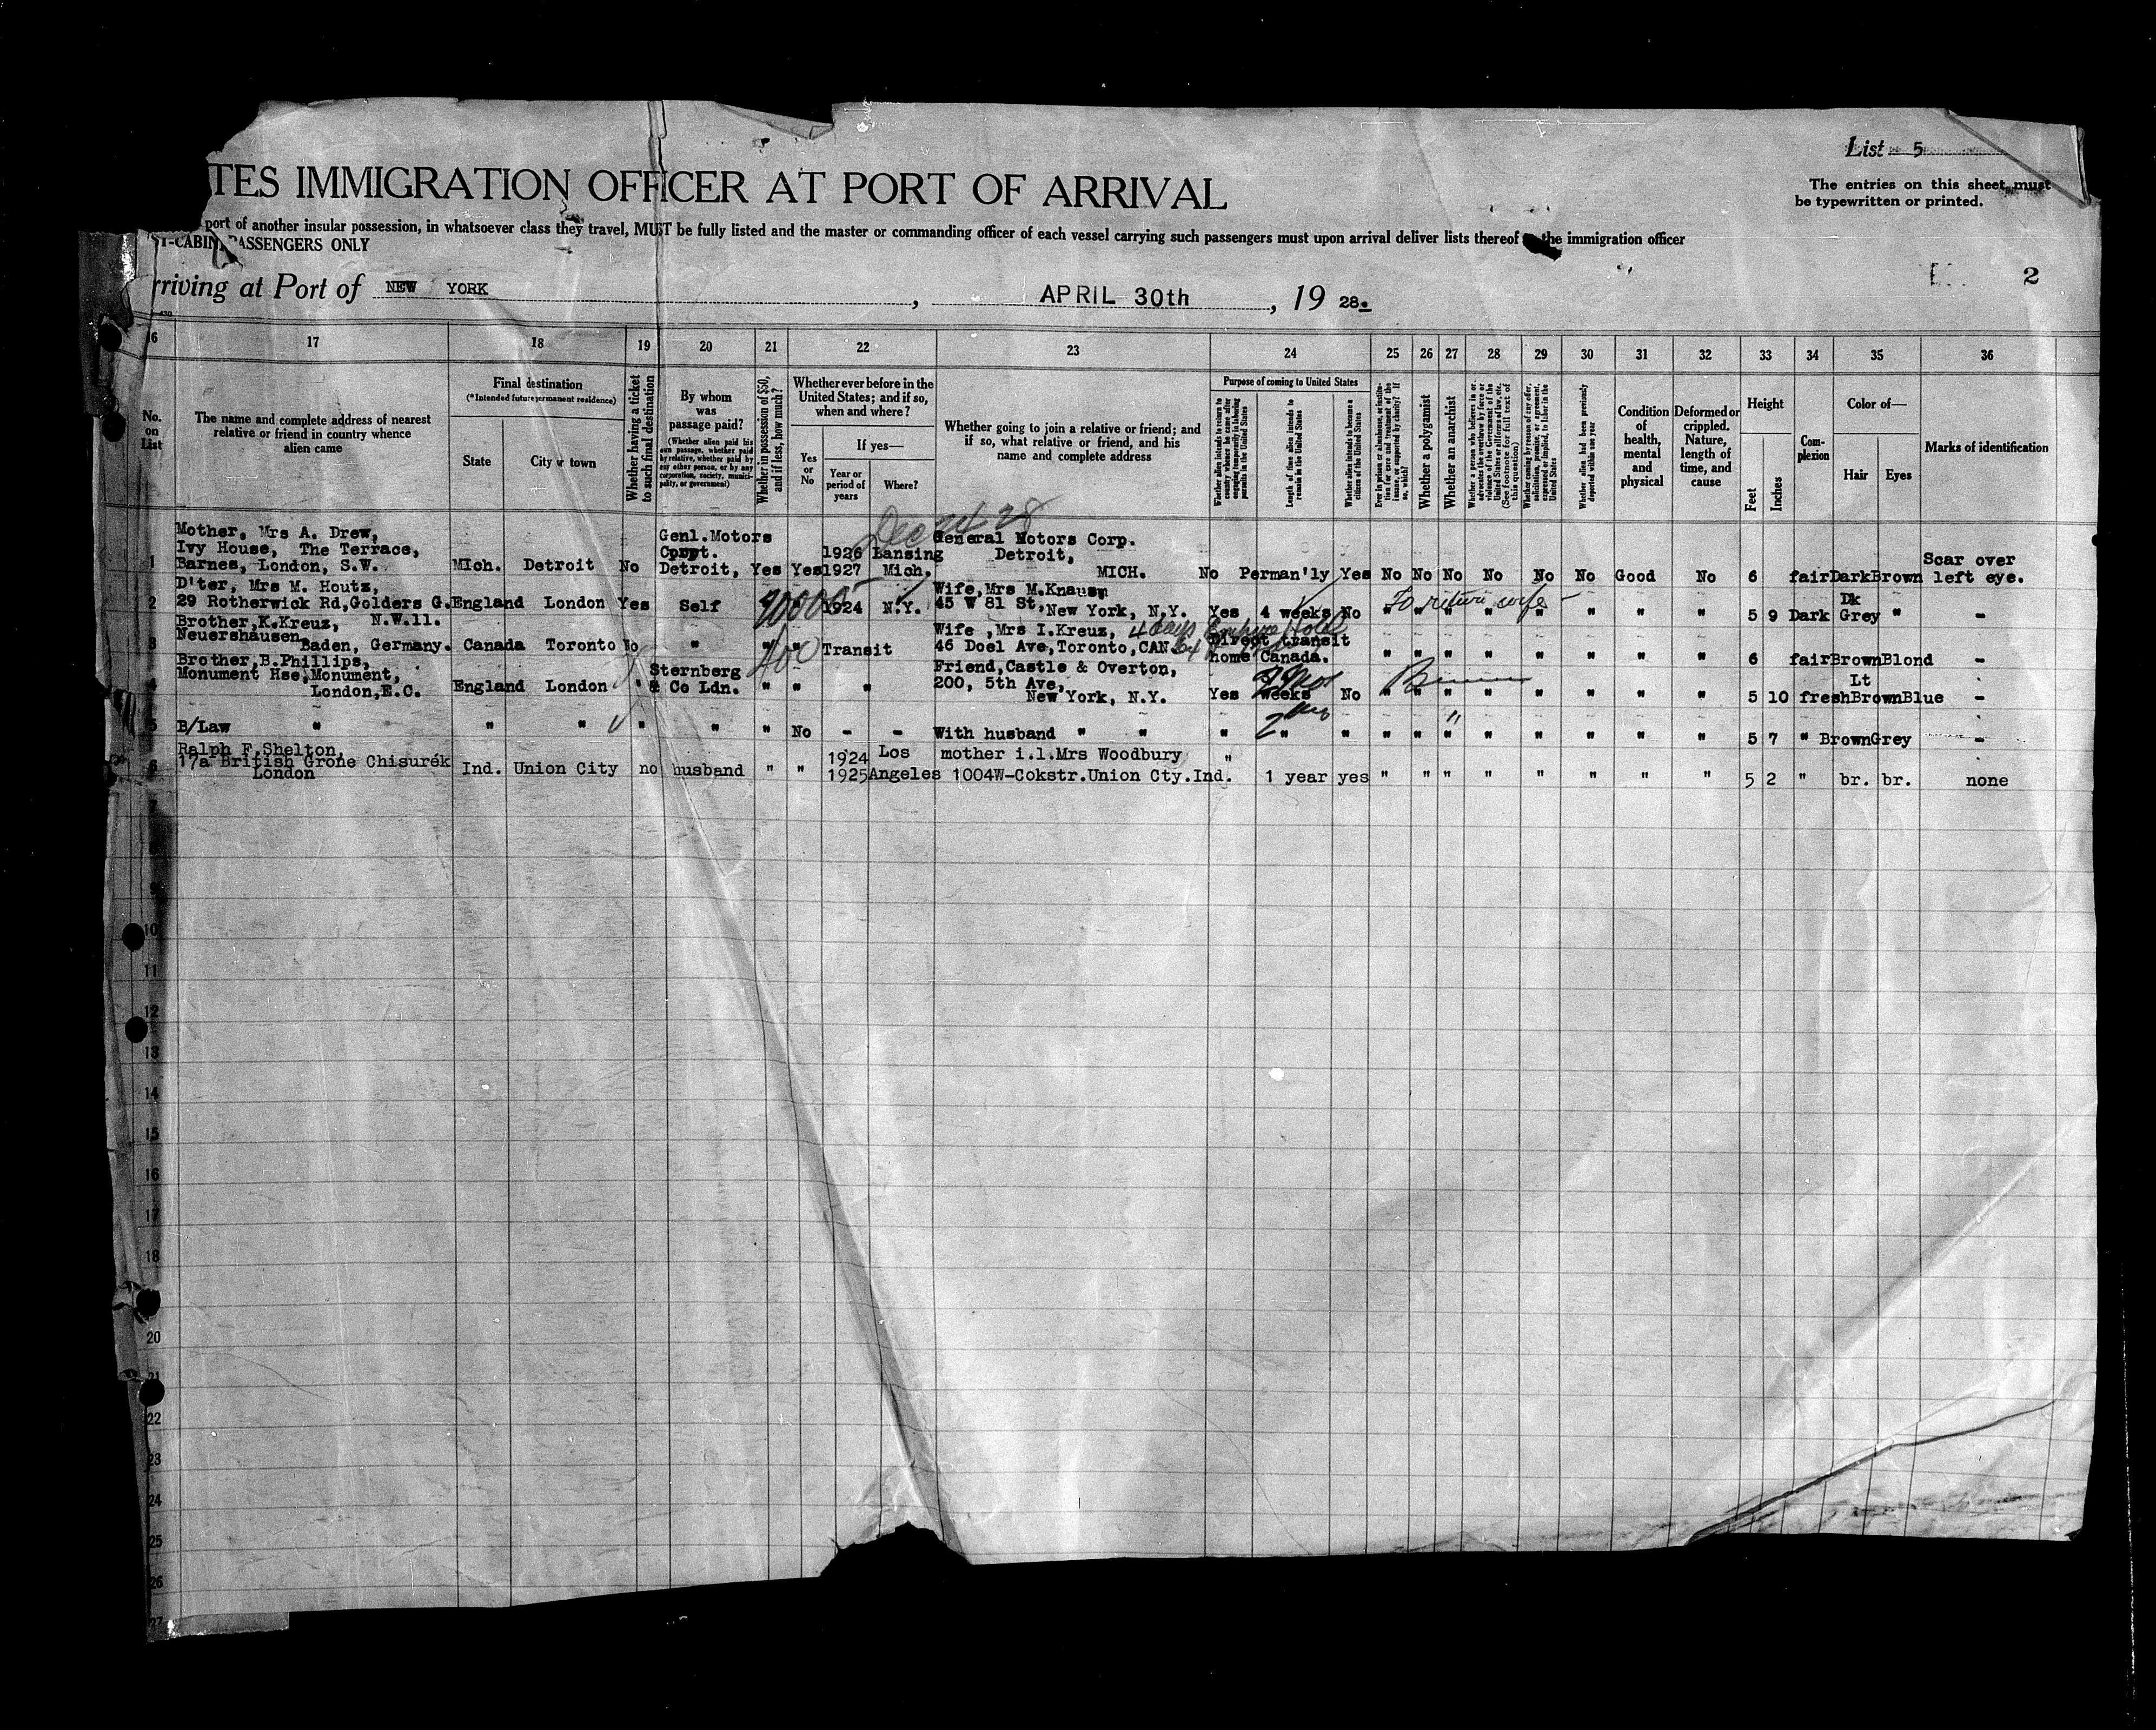 List 5
The entries on this sheet must
be typewritten or printed.
TES IMMIGRATION OFFICER AT PORT OF ARRIVAL
port of another insular possession, in whatsoever class they travel, MUST be fully listed and the master or commanding officer of each vessel carrying such passengers must upon arrival deliver lists thereof the immigration officer
PASSENGERS ONLY
rriving at Port of NEW YORK , APRIL 30th , 19 28.
2
16 17 18 19 20 21 22 23 24 25 26 27 28 29 30 31 32 33 34 35 36
No.
on
List
The name and complete address of nearest
relative or friend in country whence
alien came
Final destination
(*Intended future permanent residence)
State
City or town
Whether having a ticket
to such final destination
By whom
was
passage paid?
(Whether alien paid his
own passage, whether paid
by relative, whether paid by
any other person, or by any
corporation, society, munici-
pality, or government)
Whether in possession of $50,
and if less, how much?
Whether ever before in the
United States; and if so,
when and where?
Yes
or
No
If yes—
Year or
period of
years
Where?
Whether going to join a relative or friend; and
if so, what relative or friend, and his
name and complete address
Purpose of coming to United States
Whether alien intends to return to
country whence he came after
engaging temporarily in laboring
pursuits in the United States
Length of time alien intends to
remain in the United States
Whether alien intends to become a
citizen of the United States
Ever in prison or almshouse, or institu-
tion for care and treatment of the
insane, or supported by charity? If
so, which?
Whether a polygamist
Whether an anarchist
Whether a person who believes in or
advocates the overthrow by force or
violence of the Government of the
United States or all forms of law, etc.
(See footnote for full text of
this question)
Whether coming by reason of any offer,
solicitation, promise, or agreement,
expressed or implied, to labor in the
United States
Whether alien had been previously
deported within one year
Condition
of
health,
mental
and
physical
Deformed or
crippled.
Nature,
length of
time, and
cause
Height
Feet
Inches
Com-
plexion
Color of—
Hair
Eyes
Marks of identification
Dec 24 28
Mother, Mrs A. Drew, Genl.Motors General Motors Corp.
Ivy House, The Terrace, Corpt. 1926 Lansing Detroit, Scar over
1 Barnes, London, S.W. MIch. Detroit No Detroit, Yes Yes 1927 Mich. MICH. No Perman'ly Yes No No No No No No Good No 6 fair Dark Brown left eye.
D'ter, Mrs M. Houtz, Wife, Mrs M.Knausm Dk
2 29 Rotherwick Rd,Golders G. England London Yes Self 1924 N.Y. 45 W 81 St, New York, N.Y. Yes 4 weeks No To return wife " " " " " " " " 5 9 Dark Grey " -
N.W.11.
Brother,K.Kreuz, Wife ,Mrs I.Kreuz, 4 days Empire Hotel
Neuershausen, Direct transit
3 Baden, Germany. Canada Toronto No " " 400 " Transit 46 Doel Ave,Toronto,CAN. home Canada. " " " " " " " " 6 fair Brown Blond -
Brother,B.Phillips, Sternberg Friend,Castle & Overton, Lt
Monument Hse,Monument, 200, 5th Ave,
4 London,E.C. England London " & Co Ldn. " " " New York, N.Y. Yes weeks No " " " " " " " " 5 10 fresh Brown Blue -
5 B/Law " " " " " " No - - With husband " " " " " " " " " " " " " 5 7 " Brown Grey -
Ralph F.Shelton, 1924 Los mother i.l.Mrs Woodbury "
6 17a British Grone Chisurék
London Ind. Union City no husband " " 1925 Angeles 1004W-Cokstr.Union Cty.Ind. 1 year yes " " " " " " " " 5 2 " br. br. none
9
10
11
12
13
14
15
16
17
18
20
21
22
23
24
25
26
27